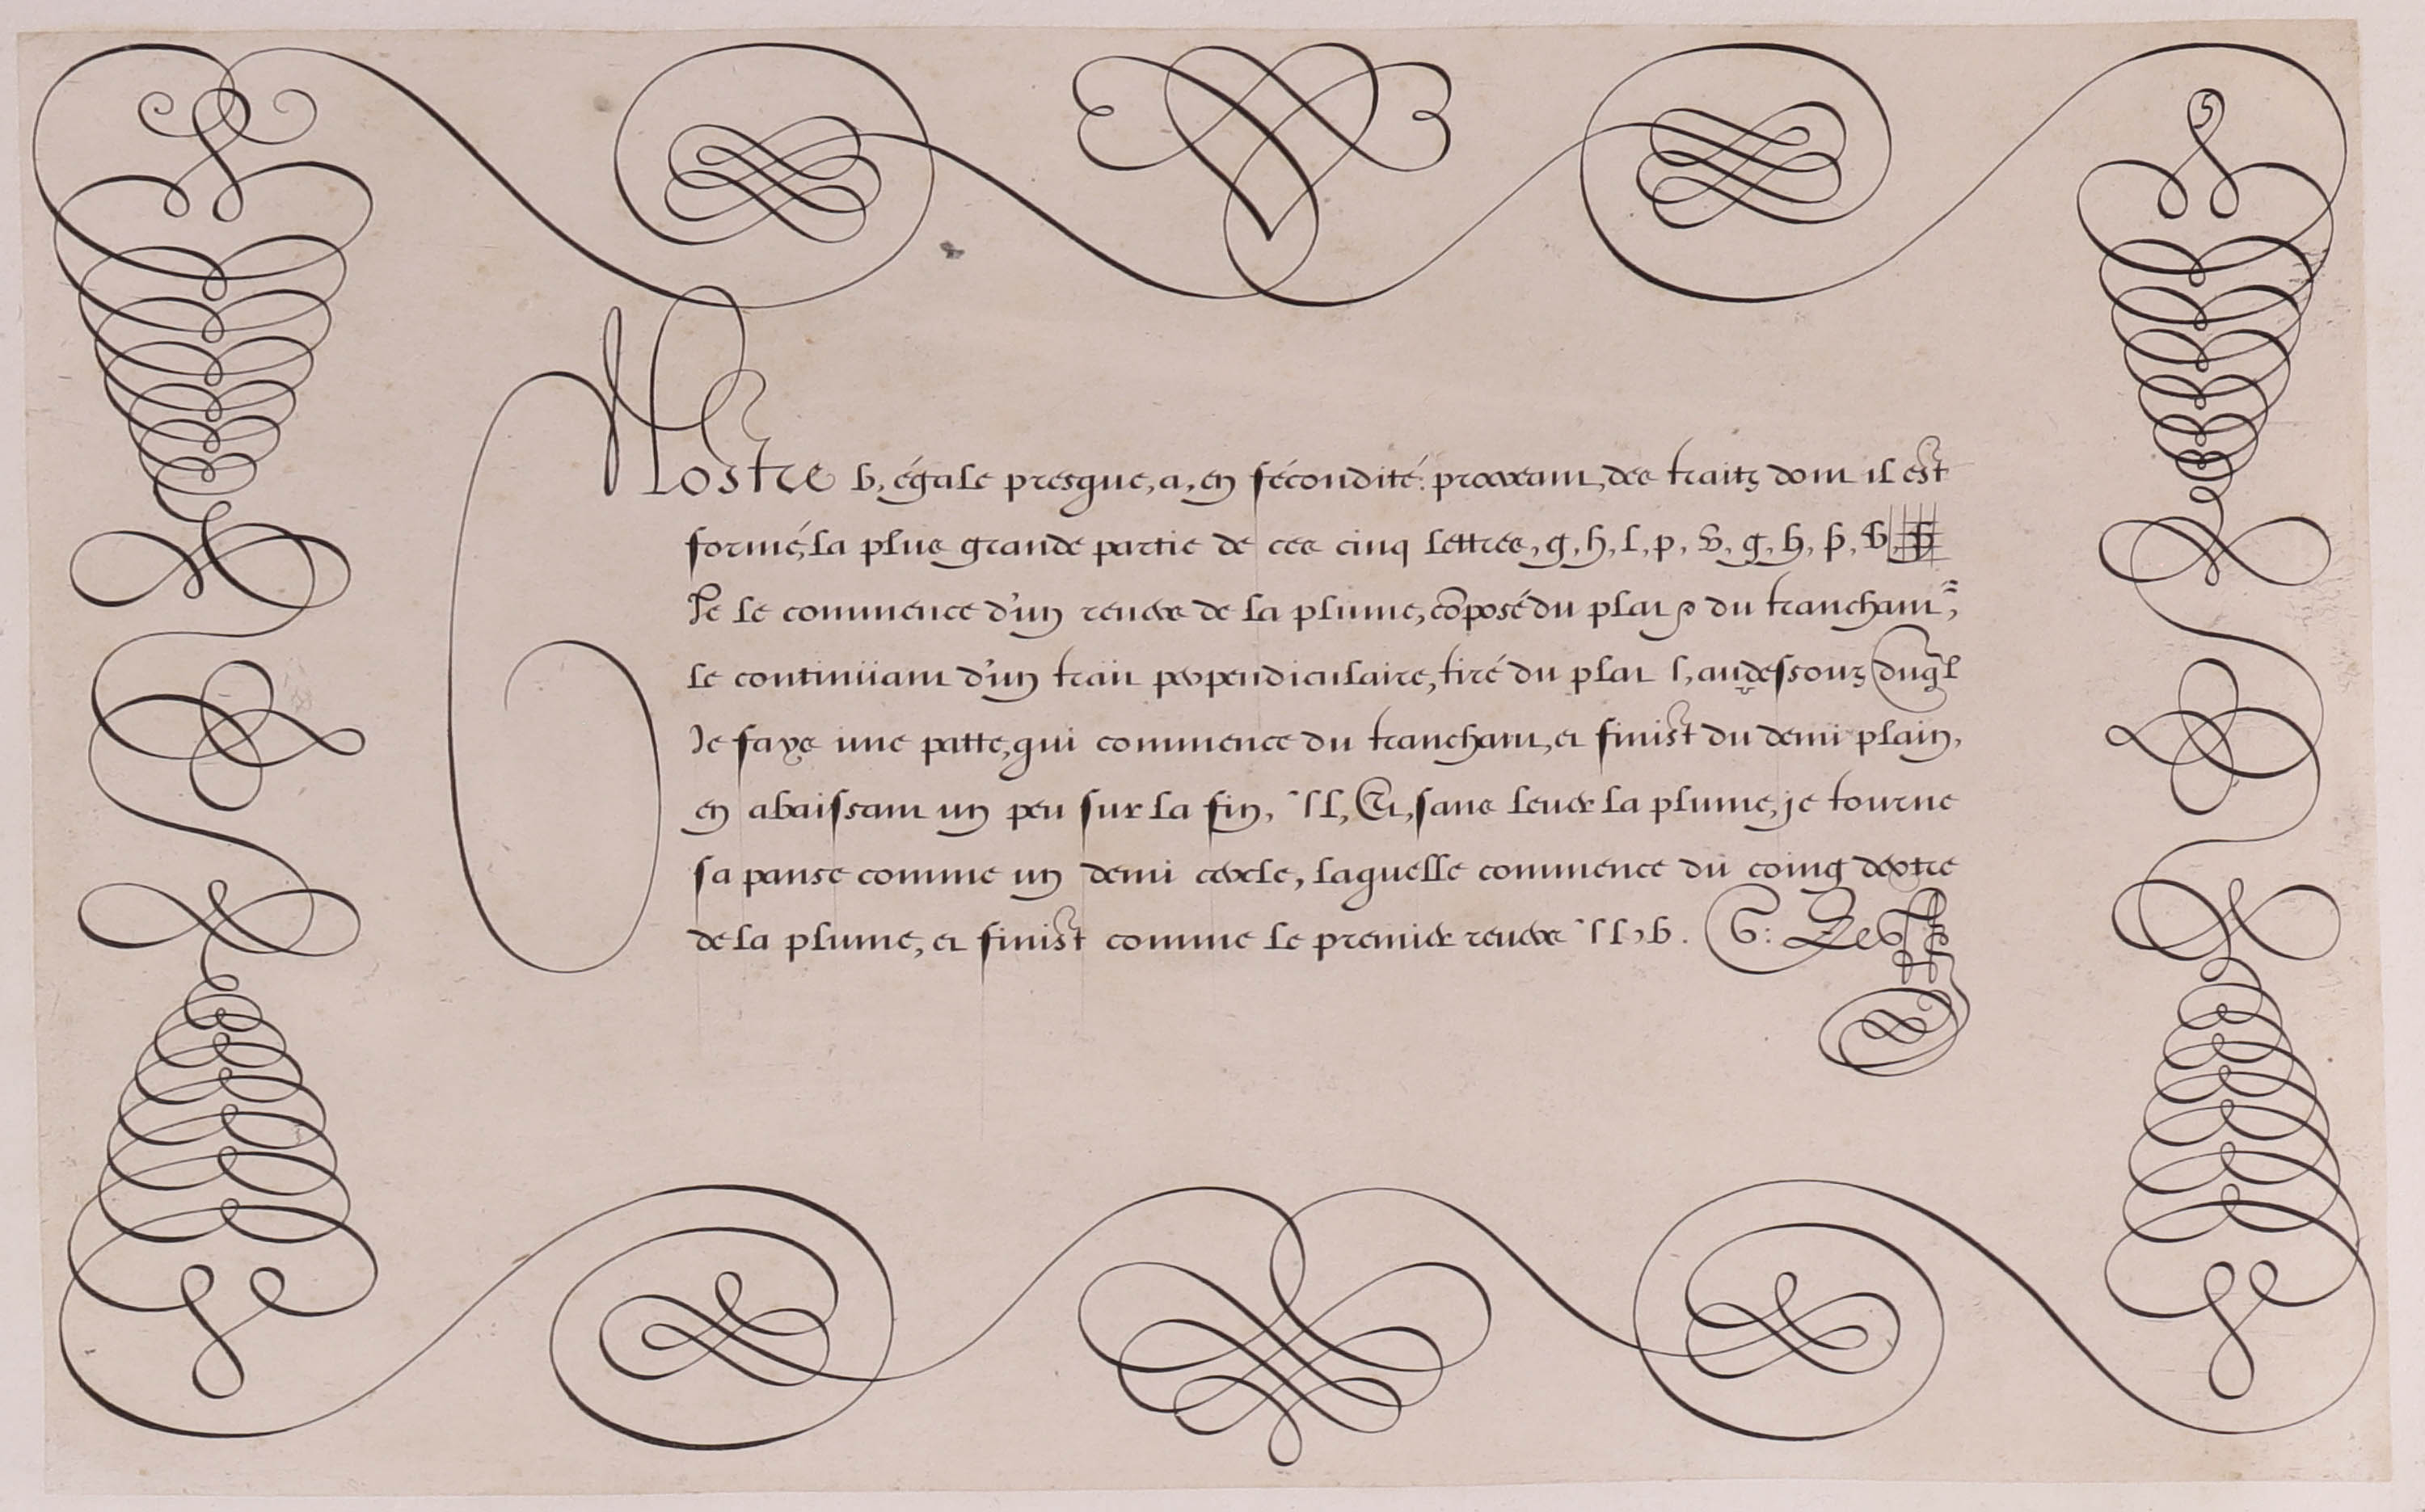 Nostre b, égale presque, a, en fécondité: prouenant, des traitz dont il est
formé, la plus grande partie de ces cinq lettres, g, h, l, p, v, g, h, p, v, b
Je le commence d'un reuers de la plume, cõposé du plat & du tranchant ˜,
le continüant d'un trait perpendiculaire, tiré du plat l, audessouz duql
Je fays une patte, qui commence du tranchant, et finist du demi plain,
en abaissant un peu sur la fin, ˜l l, Et, sans leuer la plume, je tourne
sa panse comme un demi cercle, laquelle commence du coing dextre
de la plume, et finist comme le premier reuers ˜l l, b.